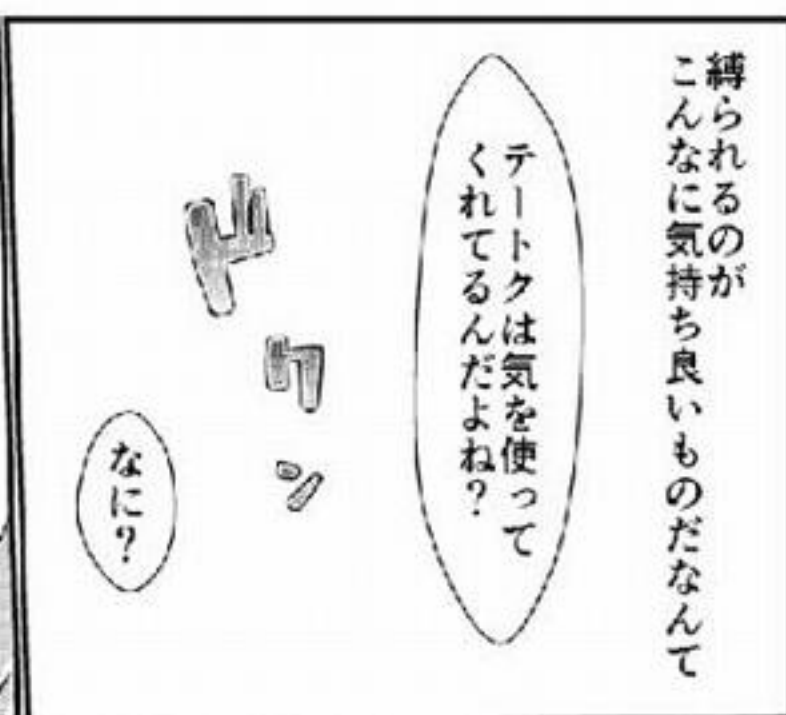 縛られるのが
こんなに気持ち良いものだなんて
テートクは気を使って
くれてるんだよね?
ドクン
なに?